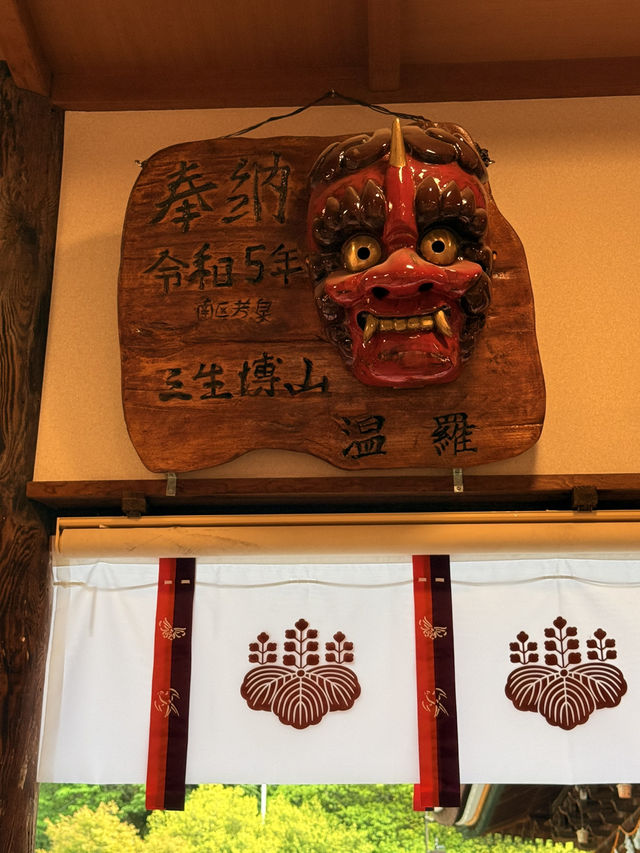 奉納
令和5年
南区芳泉
三生博山
温羅